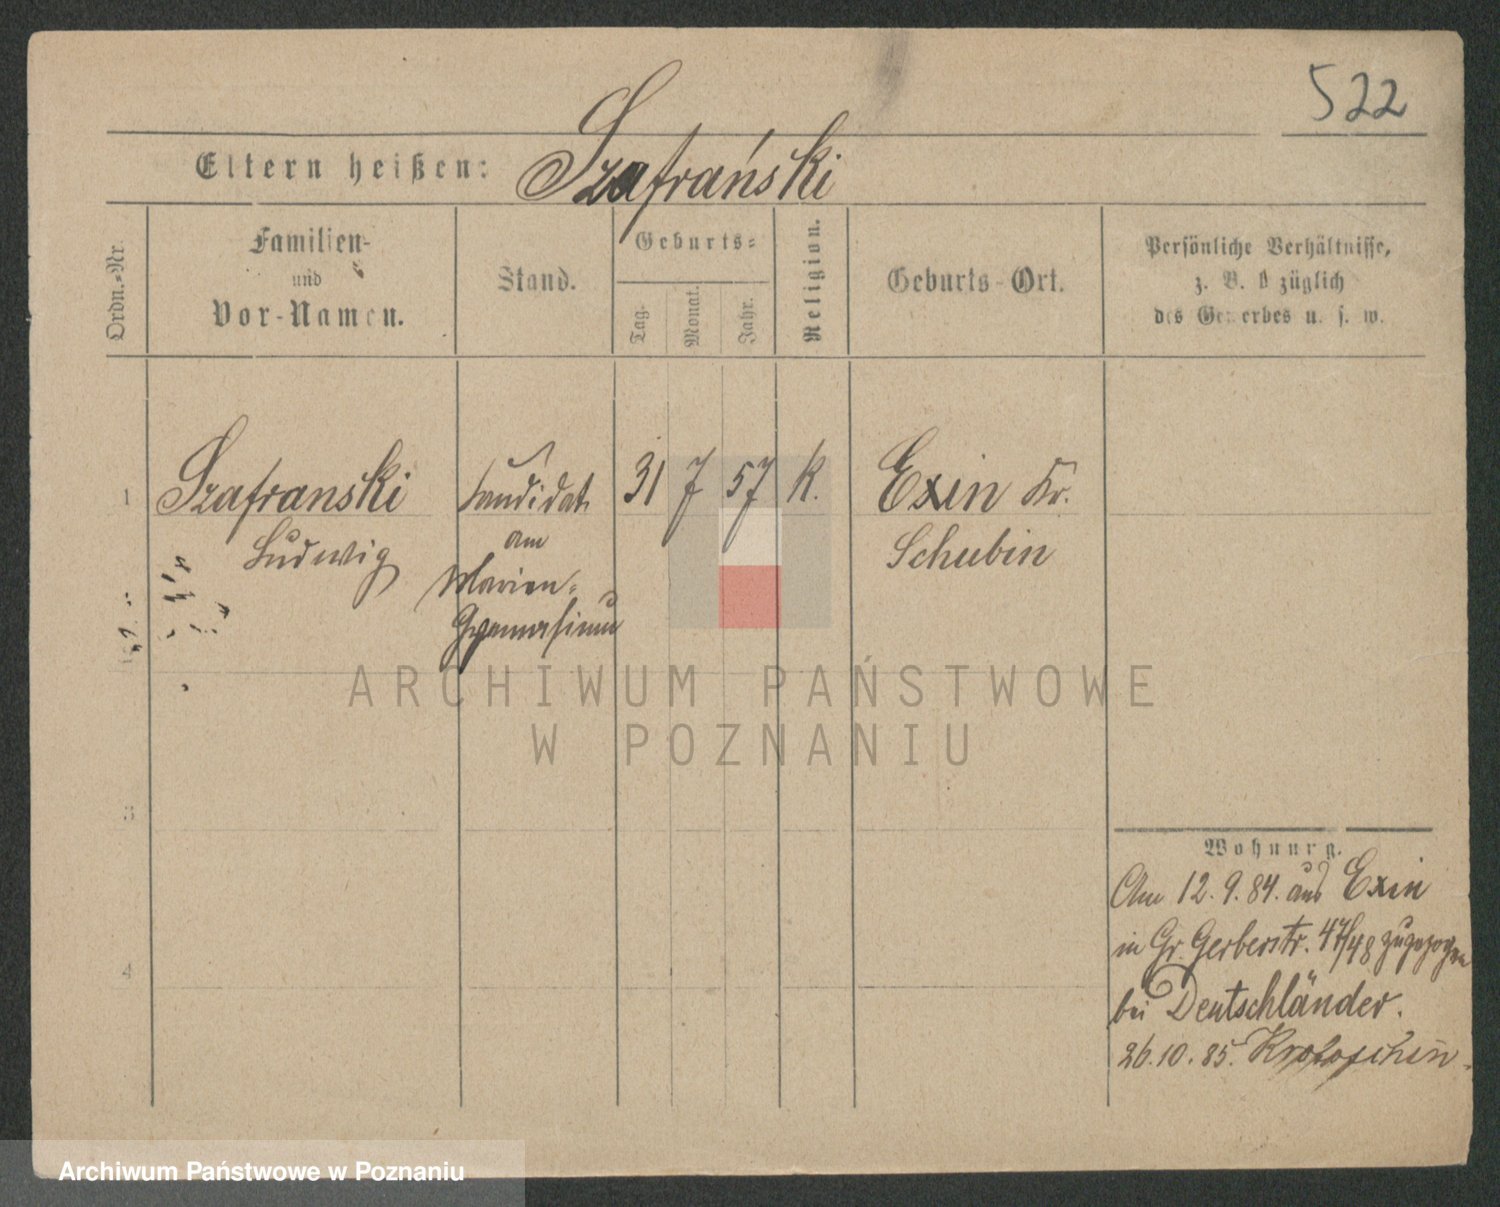 522
Eltern heißen: Szafrański
Ordn.-Nr.
Familien-
und
Vor-Namen.
Stand.
Geburts-
Tag.
Monat.
Jahr.
Religion.
Geburts-Ort.
Persönliche Verhältnisse,
z. B. b züglich
des Gewerbes u. s. w.
1 Szafranski Kandidat 31 7 57 K. Exin Kr.
Ludwig am Schubin
Marien-
Gymnasium
3
4
Wohnung.
Am 12. 9. 84. aus Exin
in Gr. Gerberstr. 47/48 zugezogen
bei Deutschländer.
26. 10. 85. Krotoschin.
ARCHIWUM PAŃSTWOWE
W POZNANIU
Archiwum Państwowe w Poznaniu